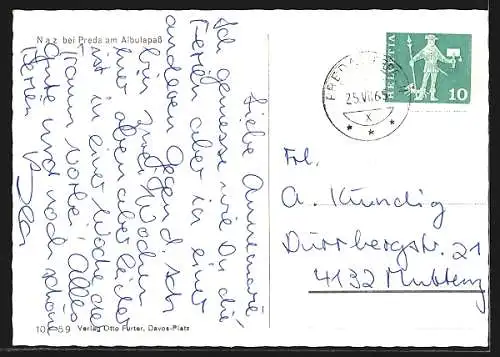 Naz bei Preda am Albulapaß
Liebe Annemarie,
Ich geniesse wie Du die
Ferien aber in einer
anderen Gegend. Ich
bin zwei Wochen
hier oben aber leider
ist in einer Woche der
Traum vorbei! Alles
Gute und noch schöne
Ferien
HELVETIA
10
PREDA
25.VII.65
X
Frl.
A. Kündig
Dürrbergstr. 21
4132 Muttenz
10 59 Verlag Otto Furter, Davos-Platz